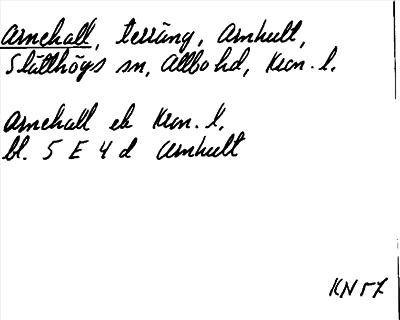 Arnehall, terräng, Arnhult,
Slätthögs sn, Allbo hd, Kron. l.
Arnehall ek Kron. l.
bl. 5 E 4 d Arnhult
KN57